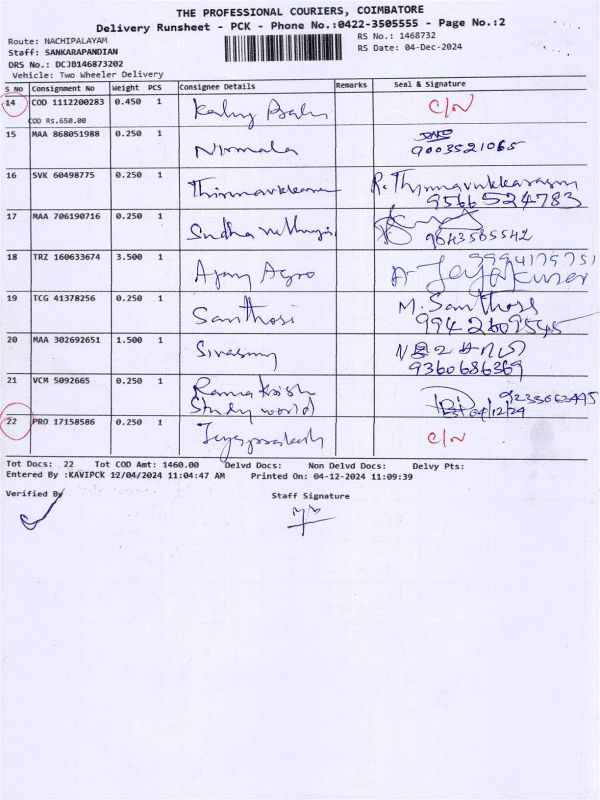 THE PROFESSIONAL COURIERS, COIMBATORE
Delivery Runsheet - PCK - Phone No.:0422-3505555 - Page No.:2
Route: NACHIPALAYAM
RS No.: 1468732
Staff: SANKARAPANDIAN
RS Date: 04-Dec-2024
DRS No.: DCJB146873202
Vehicle: Two Wheeler Delivery
S No Consignment No Weight PCS Consignee Details Remarks Seal & Signature
14 COD 1112200283 0.450 1 C/N
COD Rs.650.00
15 MAA 868051988 0.250 1 Nirmala 9003521065
16 SVK 60498775 0.250 1 R. Thirunavukkarasu
9566524783
17 MAA 706190716 0.250 1 Sudha 9843565542
18 TRZ 160633674 3.500 1 Ajay Agro A. Jayakumar
19 TCG 41378256 0.250 1 Santhosi M. Santhosi
9942609545
20 MAA 302692651 1.500 1 Sivasamy
9360686369
21 VCM 5092665 0.250 1 Ramakrish
Study world 04/12/24
22 PRO 17158586 0.250 1 Jayaprakash C/N
Tot Docs: 22 Tot COD Amt: 1460.00 Delvd Docs: Non Delvd Docs: Delvy Pts:
Entered By :KAVIPCK 12/04/2024 11:04:47 AM Printed On: 04-12-2024 11:09:39
Verified By Staff Signature